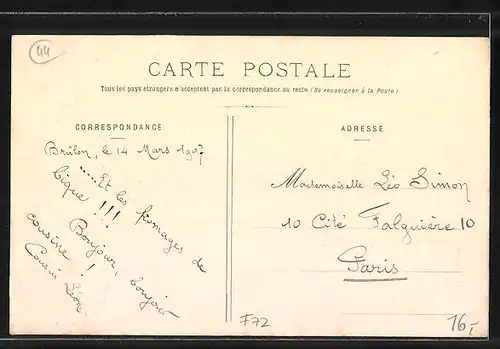 44
CARTE POSTALE
Tous les pays étrangers n'acceptent pas la correspondance au recto (Se renseigner à la Poste)
CORRESPONDANCE
Brûlon, le 14 Mars 1907
.....Et les fromages de
bique !!!
Bonjour, bonjour
cousine !
Cousin Léon
ADRESSE
Mademoiselle Léo Simon
10 Cité Falguière 10
Paris
F72
16,-